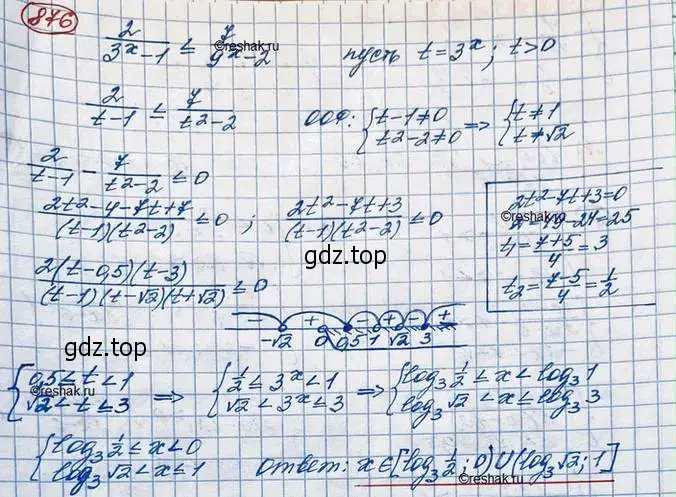 876
2/(3^x-1) ≤ 7/(9^x-2)   пусть t=3^x; t>0
©reshak.ru
2/(t-1) ≤ 7/(t²-2)   ООФ: { t-1≠0 t²-2≠0 => { t≠1 t≠√2
2/(t-1) - 7/(t²-2) ≤ 0
(2t²-4-7t+7)/((t-1)(t²-2)) ≤ 0 ; (2t²-7t+3)/((t-1)(t²-2)) ≤ 0
2t²-7t+3=0
©reshak.ru
Д=49-24=25
t₁=(7+5)/4=3
t₂=(7-5)/4=1/2
gdz.top
2(t-0,5)(t-3)/((t-1)(t-√2)(t+√2)) ≤ 0
- + - + - +
-√2 0 0,5 1 √2 3
gdz.top
{ 0,5≤t<1 √2<t≤3 => { 1/2≤3^x<1 √2<3^x≤3 => { log₃ 1/2 ≤x<log₃ 1 log₃ √2<x≤log₃ 3
©reshak.ru
{ log₃ 1/2 ≤x<0 log₃ √2<x≤1   ответ: x∈[log₃ 1/2; 0)∪(log₃ √2; 1]
©reshak.ru